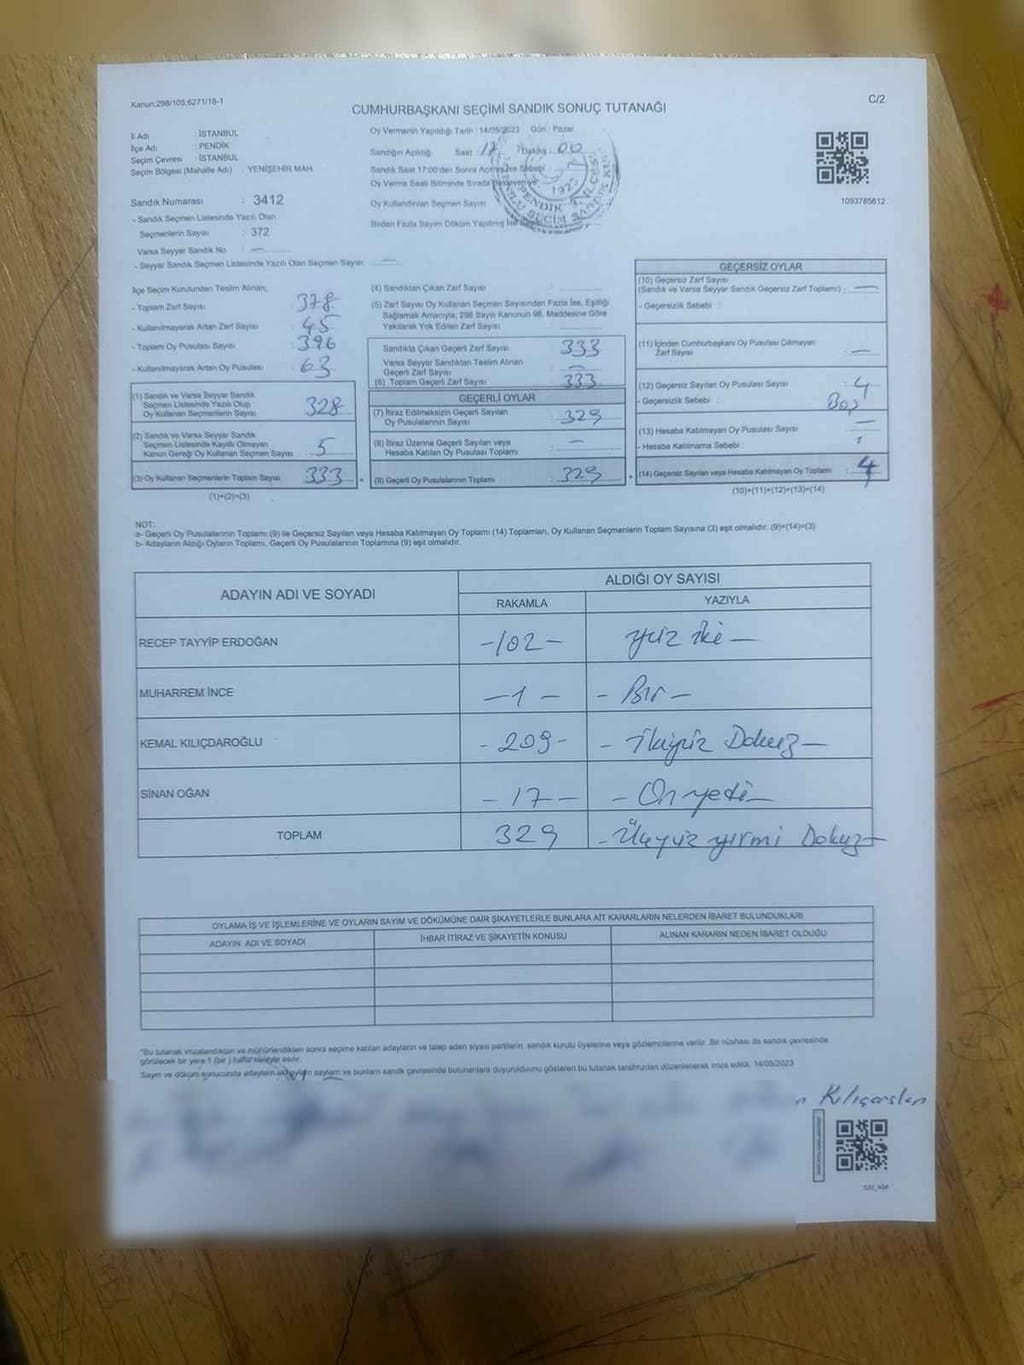 Kanun:298/105;6271/18-1
C/2
CUMHURBAŞKANI SEÇİMİ SANDIK SONUÇ TUTANAĞI
İl Adı : İSTANBUL
İlçe Adı : PENDİK
Seçim Çevresi : İSTANBUL
Seçim Bölgesi (Mahalle Adı) : YENİŞEHİR MAH.
Sandık Numarası : 3412
- Sandık Seçmen Listesinde Yazılı Olan
Seçmenlerin Sayısı : 372
Varsa Seyyar Sandık No : —
- Seyyar Sandık Seçmen Listesinde Yazılı Olan Seçmen Sayısı: —
Oy Vermenin Yapıldığı Tarih : 14/05/2023 Gün : Pazar
Sandığın Açıldığı Saat : 17 Dakika : 00
Sandık Saat 17:00'den Sonra Açılmış İse Sebebi
Oy Verme Saati Bitiminde Sırada
Oy Kullandırılan Seçmen Sayısı
Birden Fazla Sayım Döküm Yapılmış İse
1093785612
İlçe Seçim Kurulundan Teslim Alınan;
- Toplam Zarf Sayısı : 378
- Kullanılmayarak Artan Zarf Sayısı : 45
- Toplam Oy Pusulası Sayısı : 396
- Kullanılmayarak Artan Oy Pusulası : 63
(1) Sandık ve Varsa Seyyar Sandık
Seçmen Listesinde Yazılı Olup
Oy Kullanan Seçmenlerin Sayısı : 328
(2) Sandık ve Varsa Seyyar Sandık
Seçmen Listesinde Kayıtlı Olmayan
Kanun Gereği Oy Kullanan Seçmen Sayısı : 5
(3) Oy Kullanan Seçmenlerin Toplam Sayısı : 333
(1)+(2)=(3)
(4) Sandıktan Çıkan Zarf Sayısı :
(5) Zarf Sayısı Oy Kullanan Seçmen Sayısından Fazla İse, Eşitliği
Sağlamak Amacıyla; 298 Sayılı Kanunun 98. Maddesine Göre
Yakılarak Yok Edilen Zarf Sayısı :
Sandıkta Çıkan Geçerli Zarf Sayısı : 333
Varsa Seyyar Sandıktan Teslim Alınan
Geçerli Zarf Sayısı : —
(6) Toplam Geçerli Zarf Sayısı : 333
GEÇERLİ OYLAR
(7) İtiraz Edilmeksizin Geçerli Sayılan
Oy Pusulasının Sayısı : 329
(8) İtiraz Üzerine Geçerli Sayılan veya
Hesaba Katılan Oy Pusulası Toplamı : —
(9) Geçerli Oy Pusulalarının Toplamı : 329
GEÇERSİZ OYLAR
(10) Geçersiz Zarf Sayısı
(Sandık ve Varsa Seyyar Sandık Geçersiz Zarf Toplamı) : —
- Geçersizlik Sebebi :
(11) İçinden Cumhurbaşkanı Oy Pusulası Çıkmayan
Zarf Sayısı : —
(12) Geçersiz Sayılan Oy Pusulası Sayısı : 4
- Geçersizlik Sebebi : Boş
(13) Hesaba Katılmayan Oy Pusulası Sayısı : —
- Hesaba Katılmama Sebebi :
(14) Geçersiz Sayılan veya Hesaba Katılmayan Oy Toplamı : 4
(10)+(11)+(12)+(13)=(14)
NOT:
a- Geçerli Oy Pusulalarının Toplamı (9) ile Geçersiz Sayılan veya Hesaba Katılmayan Oy Toplamı (14) Toplamları, Oy Kullanan Seçmenlerin Toplam Sayısına (3) eşit olmalıdır. (9)+(14)=(3)
b- Adayların Aldığı Oyların Toplamı, Geçerli Oy Pusulalarının Toplamına (9) eşit olmalıdır.
ADAYIN ADI VE SOYADI
ALDIĞI OY SAYISI
RAKAMLA YAZIYLA
RECEP TAYYİP ERDOĞAN -102- yüz iki —
MUHARREM İNCE —1— - Bir -
KEMAL KILIÇDAROĞLU -209- - İkiyüz Dokuz —
SİNAN OĞAN - 17 - - Onyedi —
TOPLAM 329 - Üçyüz yirmi Dokuz -
OYLAMA İŞ VE İŞLEMLERİNE VE OYLARIN SAYIM VE DÖKÜMÜNE DAİR ŞİKAYETLERLE BUNLARA AİT KARARLARIN NELERDEN İBARET BULUNDUKLARI
ADAYIN ADI VE SOYADI İHBAR İTİRAZ VE ŞİKAYETİN KONUSU ALINAN KARARIN NEDEN İBARET OLDUĞU
"Bu tutanak imzalandıktan ve mühürlendikten sonra seçime katılan adayların ve talep eden siyasi partilerin sandık kurulu üyelerine veya gözlemcilerine verilir. Bir nüshası da sandık çevresinde
görülecek bir yere 1 (bir) hafta süreyle asılır.
Sayım ve döküm sonucunda adayların aldığı oyların sayıları ve bunların sandık çevresinde bulunanlara duyurulduğunu gösteren bu tutanak tarafımızdan düzenlenerek imza edildi. 14/05/2023
n Kılıçarslan